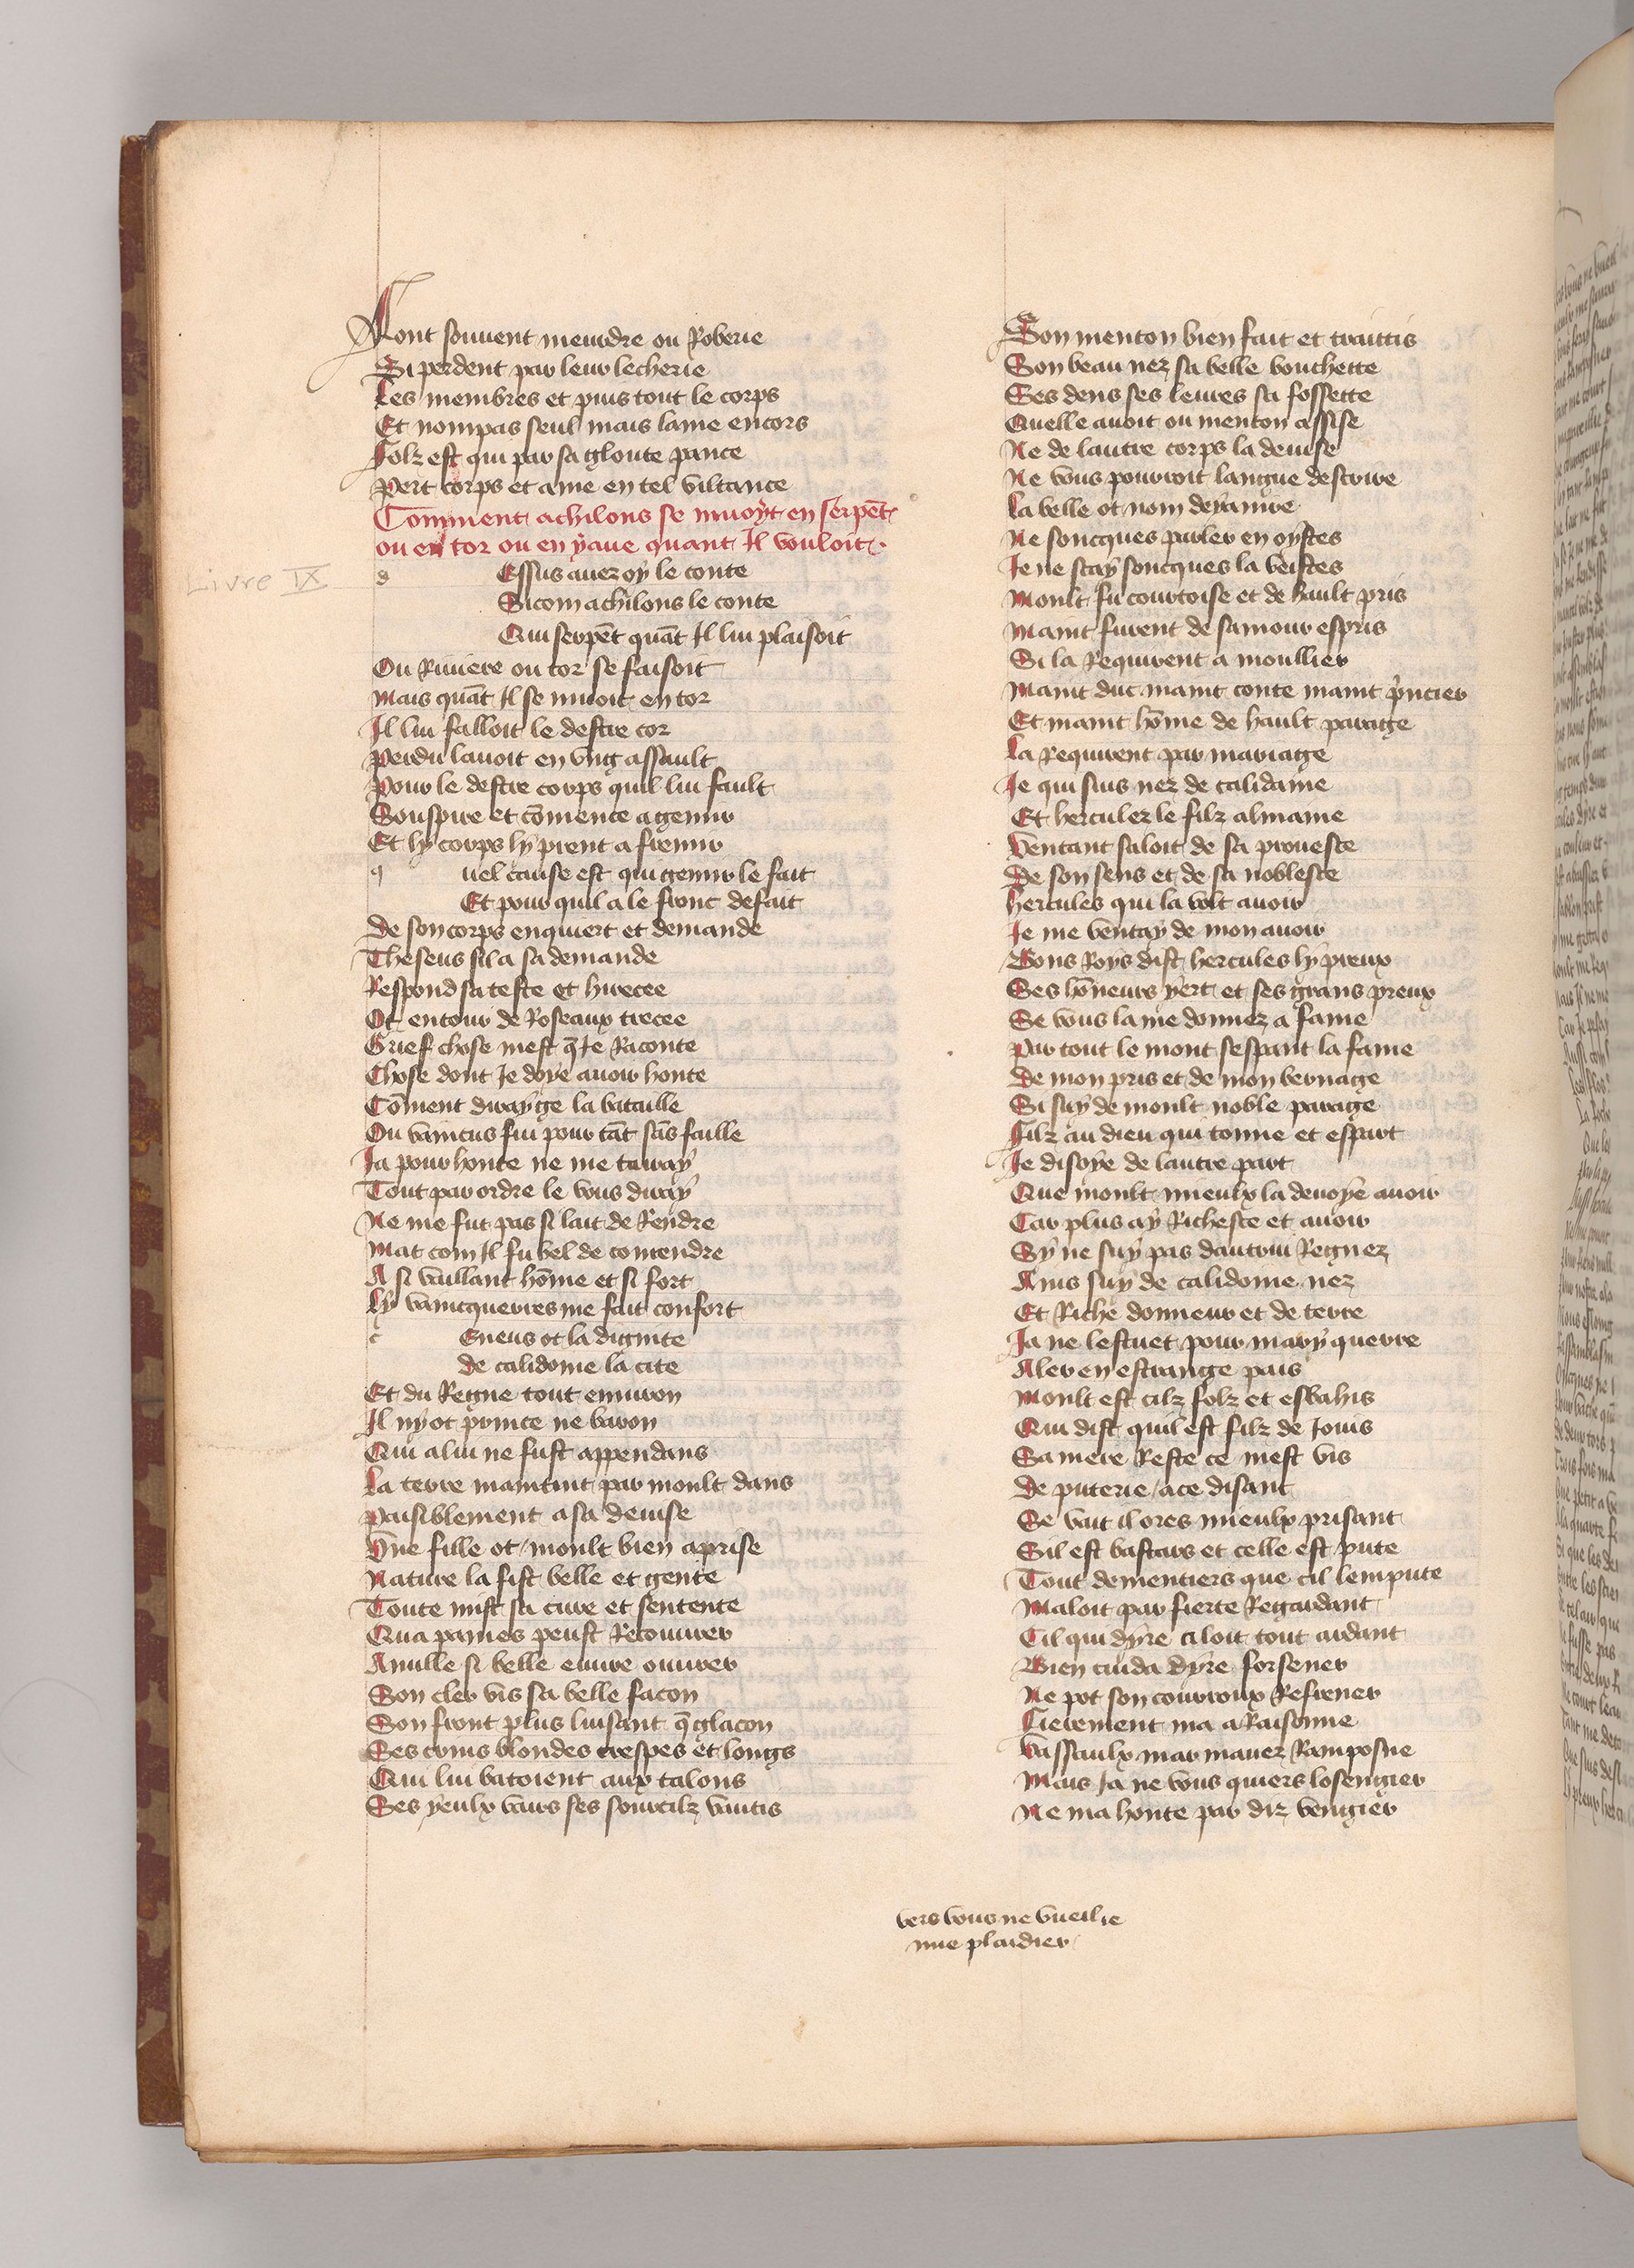 Font souuent meurdre ou Roberie
Si perdent par leur lecherie
Les membres et puis tout le corps
Et nompas seul mais lame encors
Folz est qui par sa gloute pance
Pert corps et ame en tel viltance
Comment achilons se muoyt en serpēt
ou en tor ou en yaue quant Il vouloit
Livre IX
d Essus auez oy le conte
Sicom achilons le conte
Qui serpēt quāt Il lui plaisoit
Ou Riuiere ou tor se faisoit
Mais quāt Il se muoit en tor
Il lui falloit le destre cor
Perdu lauoit en vng assault
Pour le destre corps quil lui fault
Souspire et cōmence a gemir
Et ly corps ly prent a fremir
q uel cause est qui gemir le fait
Et pour quil a le front defait
De son corps enquiert et demande
Theseus sil a sa demande
Respond sa teste et hirecee
Ot entour de Roseaux trecee
Grief chose mest q̄ Ie Raconte
Chose dont Ie doye auoir honte
Cōment dirayge la bataille
Ou vaincus fui pour tāt sās faille
Ia pour honte ne me tairay
Tout par ordre le vous diray
Ne me fut pas si lait de Rendre
Mat com Il fu bel de contendre
A si vaillant hōme et si fort
Ly vaincquerres me fait confort
e Eneus ot la dignite
de calidoine la cite
Et du Regne tout enuiron
Il ny ot prince ne baron
Qui a lui ne fust appendans
La terre maintint par moult dans
Paisiblement a sa deuise
Vne fille ot moult bien aprise
Nature la fist belle et gente
Toute mist sa cure et sentente
Qua paines peust Recouurer
A nulle si belle euure ouurer
Son cler vis sa belle facon
Son front plus luisant q̄ glacon
Ses crins blondes crespes et longs
Qui lui batoient aux talons
Ses yeulx vairs ses sourcilz vautis
Son menton bien fait et traittis
Son beau nez sa belle bouchette
Ses dens ses leures sa fossette
Quelle auoit ou menton assise
Ne de lautre corps la deuise
Ne vous pourroit langue descrire
La belle ot nom deyamire
Ne soncques parler en oystes
Ie ne scay soncques la veistes
Moult fu courtoise et de hault pris
Maint furent de samour espris
Si la Requirent a moullier
Maint duc maint conte maint p̄ncier
Et maint hōme de hault parage
La Requirent par mariage
Ie qui suis nez de calidaine
Et herculez le filz almaine
Ventant saloit de sa prouesce
De son sens et de sa noblesce
hercules qui la volt auoir
Ie me ventay de mon auoir
Bons Roys dist hercules ly preux
Ses hōneurs yert et ses grans preux
Se vous la me donnez a fame
Par tout le mont sespant la fame
De mon pris et de mon bernage
Si suy de moult noble parage
Filz au dieu qui tonne et espart
Ie disoye de lautre part
Que moult mieulx la deuoye auoir
Car plus ay Richesce et auoir
Sy ne suy pas dautrui Regnez
Ains suy de calidoine nez
Et Riche donneur et de terre
Ia ne lestuet pour mary querre
Aler en estrange pais
Moult est cilz folz et esbahis
Qui dist quil est filz de Iouis
Sa mere Reste ce mest vis
De puterie ace disant
Se vait il ores mieulx prisant
Sil est bastars et celle est pute
Tout dementiers que cil lempute
Maloit par fierte Regardant
Cil qui dyre aloit tout ardant
Bien cuida dyre forsener
Ne pot son courroux Refrener
Fierement ma a Raisonne
Vassaulx mar mauez Ramposne
Mais Ia ne vous quiers losengier
Ne ma honte par diz vengier
vers vous ne vueil ie
mie plaidier